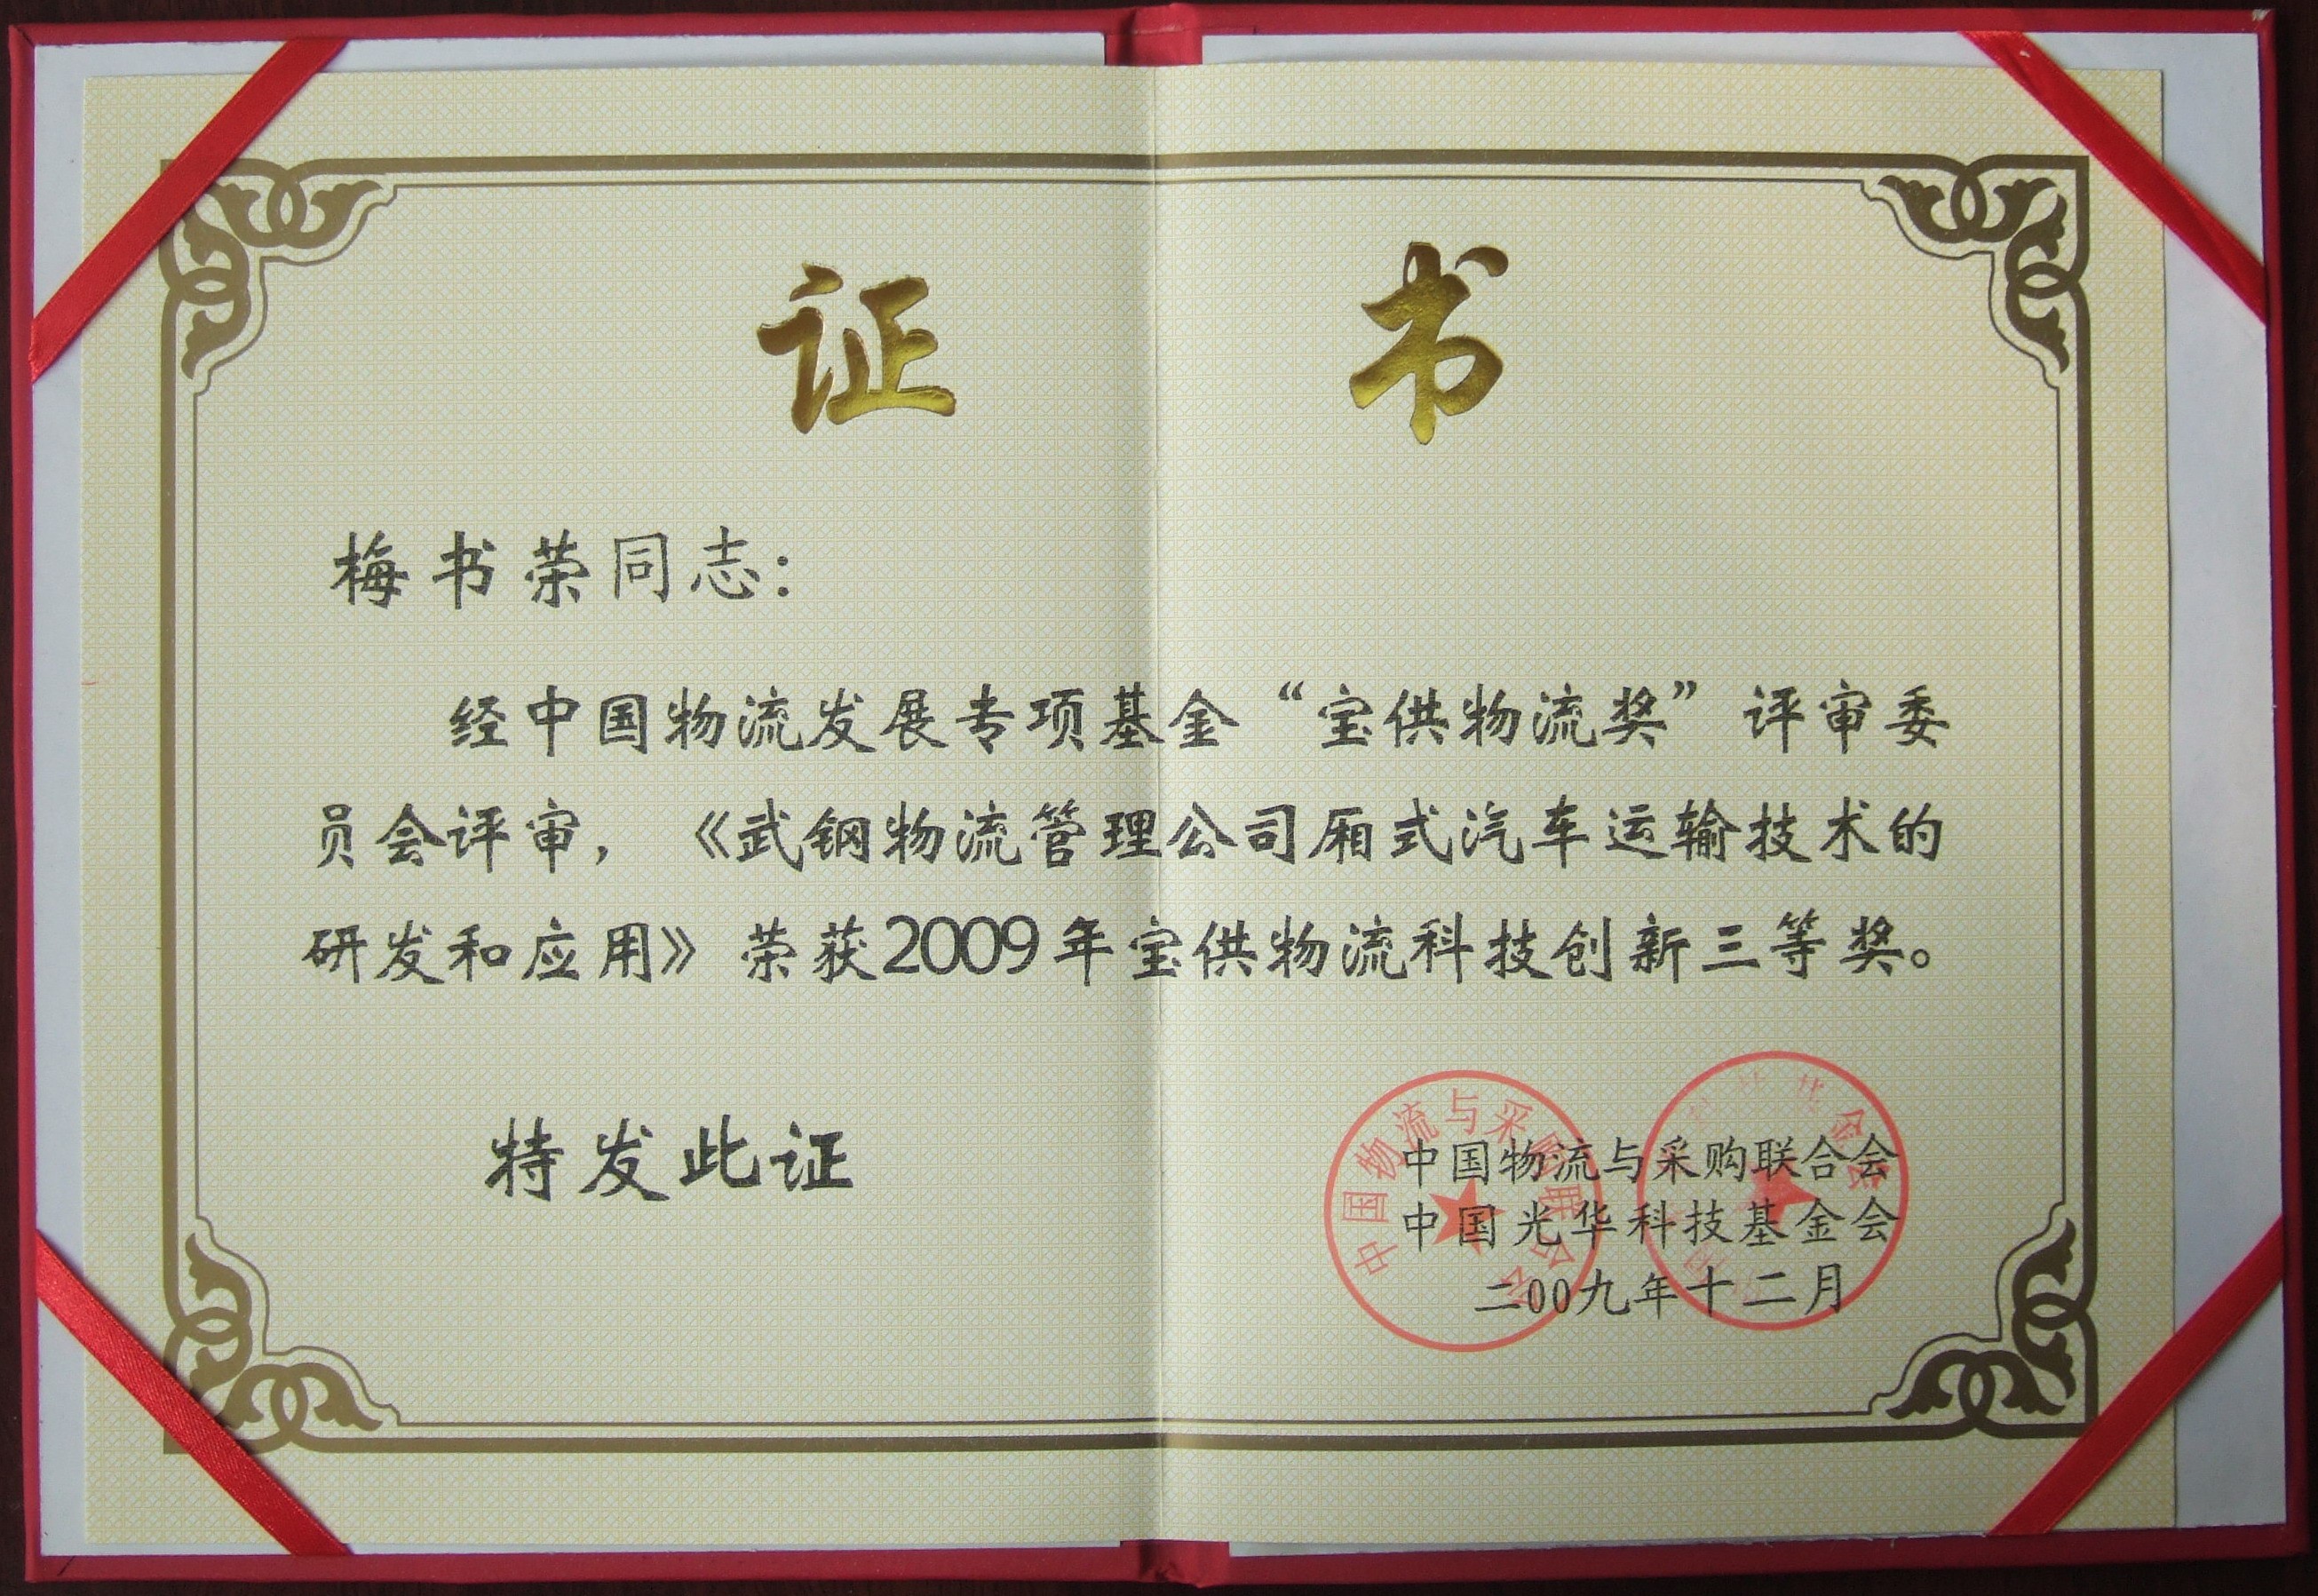 证书
梅书荣同志：
经中国物流发展专项基金“宝供物流奖”评审委
员会评审，《武钢物流管理公司厢式汽车运输技术的
研发和应用》荣获2009年宝供物流科技创新三等奖。
特发此证
中国物流与采购联合会
中国光华科技基金会
二00九年十二月
中国物流与采购联合会